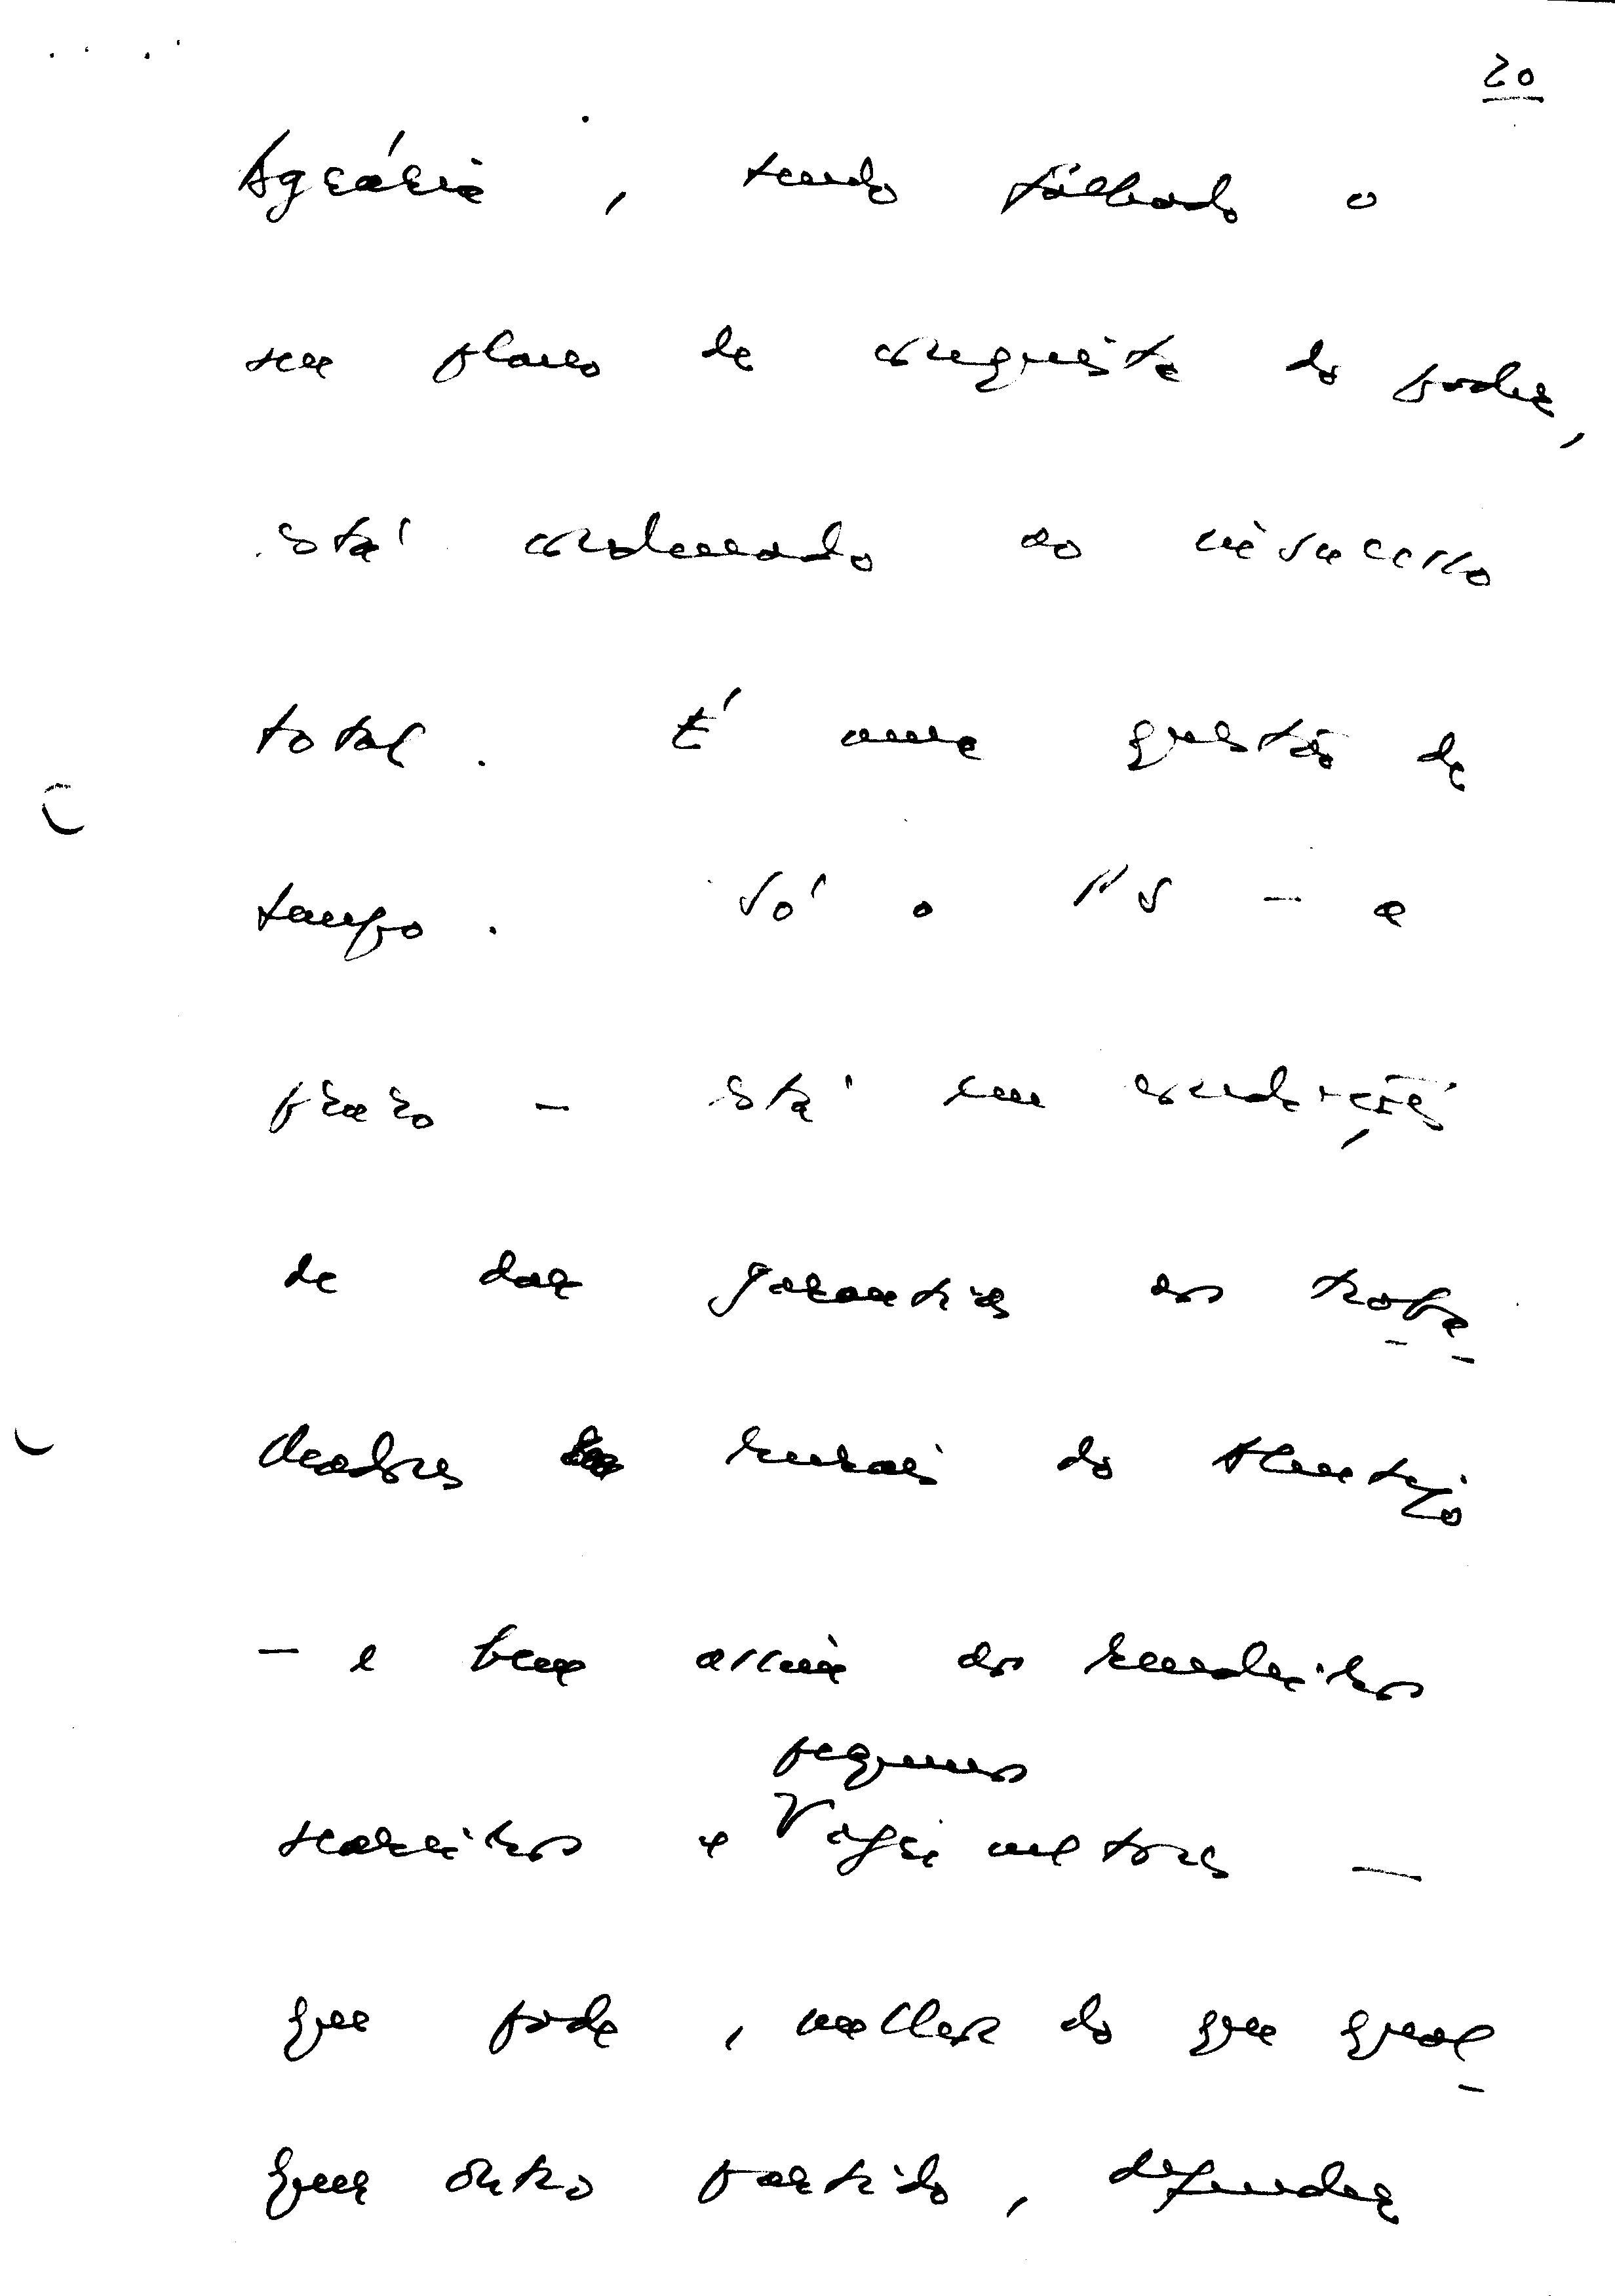 20
Agrária, tendo falhado o
seu plano de conquista do poder,
está condenado ao insucesso
total. É uma questão de
tempo. Só o PS - a
prazo - está em condições
de dar garantias aos traba-
lhadores rurais do Alentejo
- e bem assim aos rendeiros
seareiros e pequenos agricultores -
que pode, melhor do que qual-
quer outro partido, defender